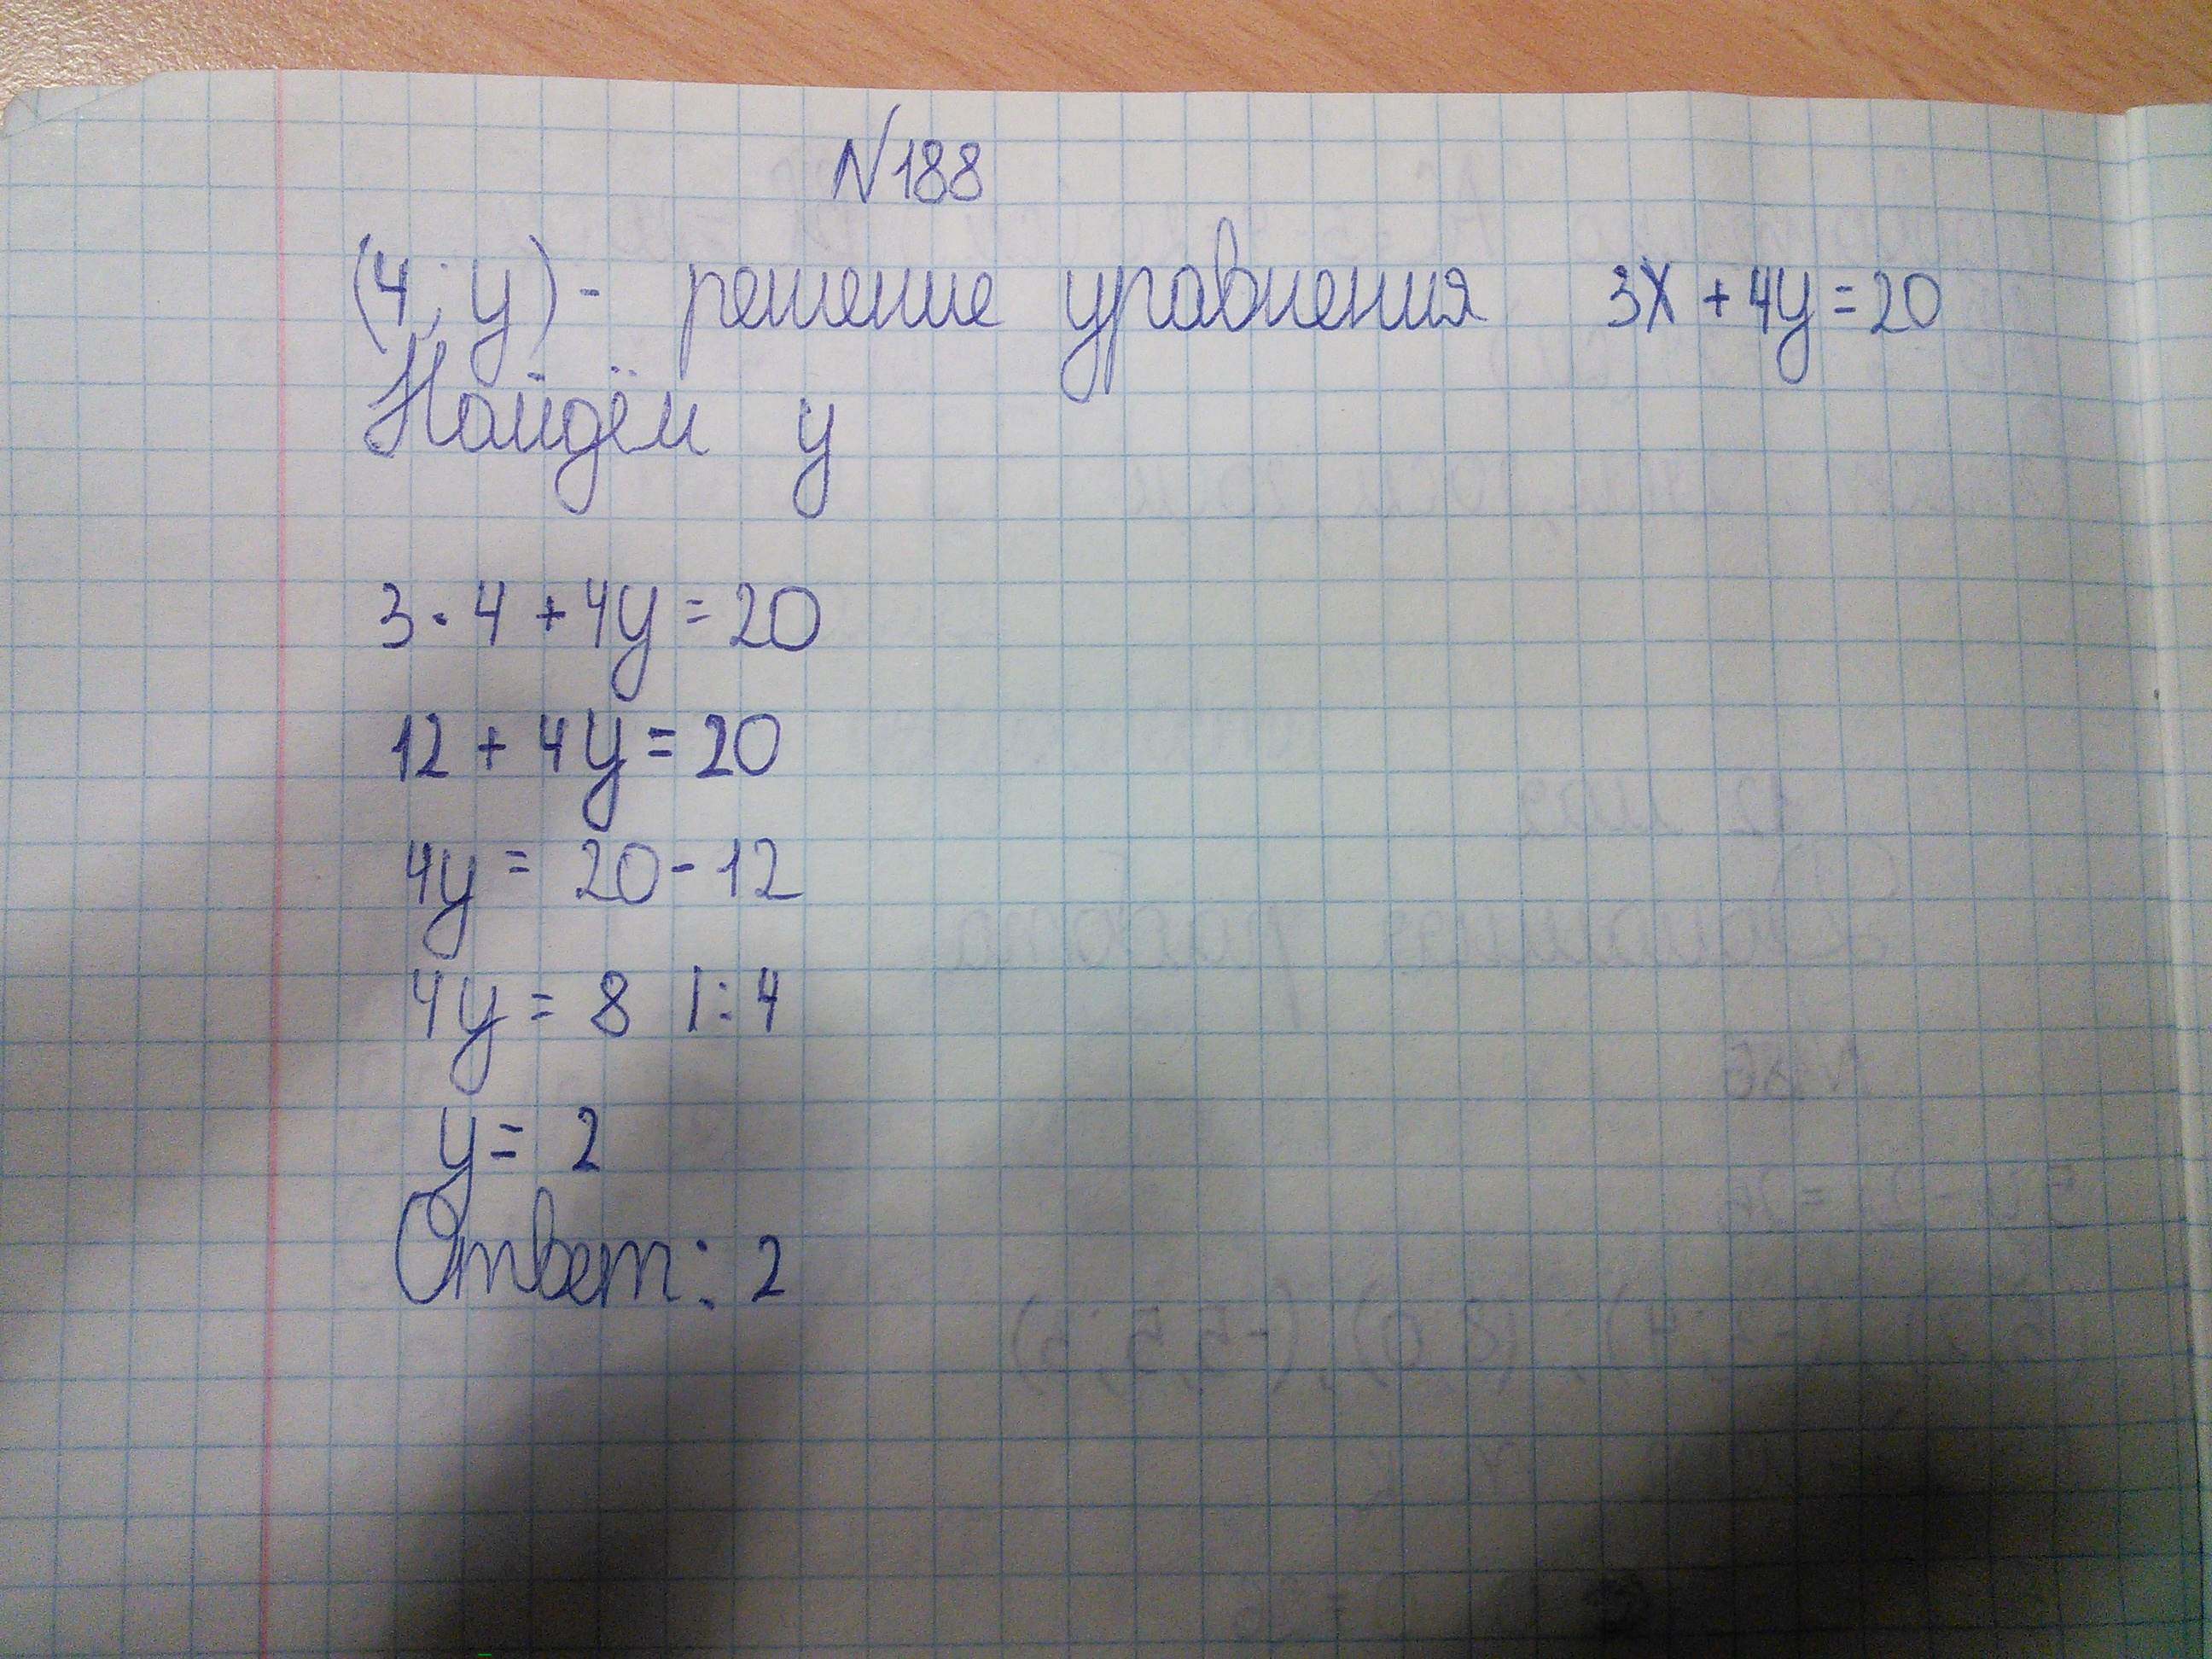 N188
(4; y) - решение уравнения 3x + 4y = 20
Найдём y
3 · 4 + 4y = 20
12 + 4y = 20
4y = 20 - 12
4y = 8 |: 4
y = 2
Ответ: 2